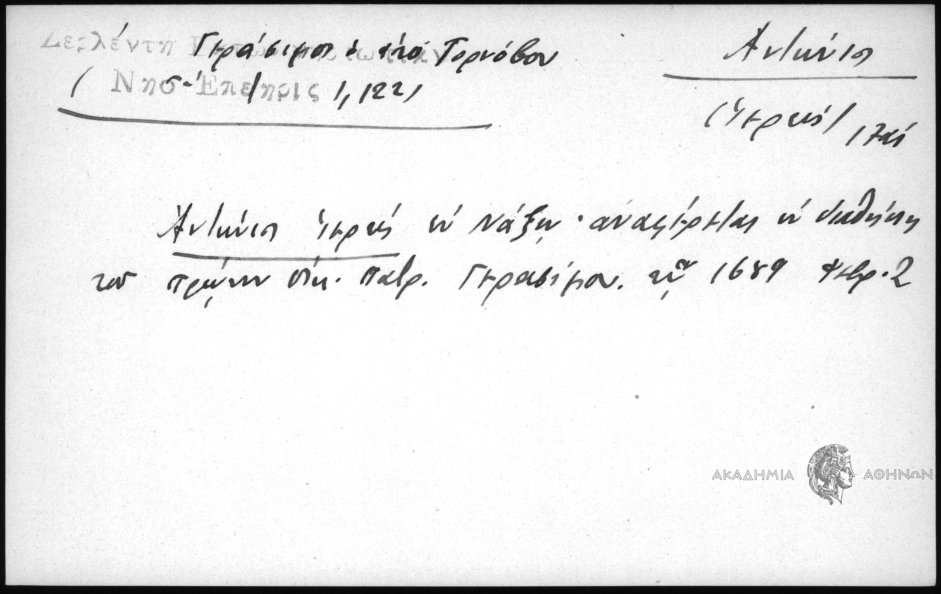 Δερλέντη Γεράσιμος ὁ ἀπὸ Τορνόβου
( Νησ. Ἐπετηρὶς 1, 122)
Ἀντώνιος
(ἱερεύς) 17ος
Ἀντώνιος ἱερεύς ἐν Νάξῳ· ἀναφέρεται ἐν διαθήκῃ
τοῦ πρώην οἰκ. πατρ. Γερασίμου. τῷ 1689 Φεβρ. 2
ΑΚΑΔΗΜΙΑ ΑΘΗΝΩΝ